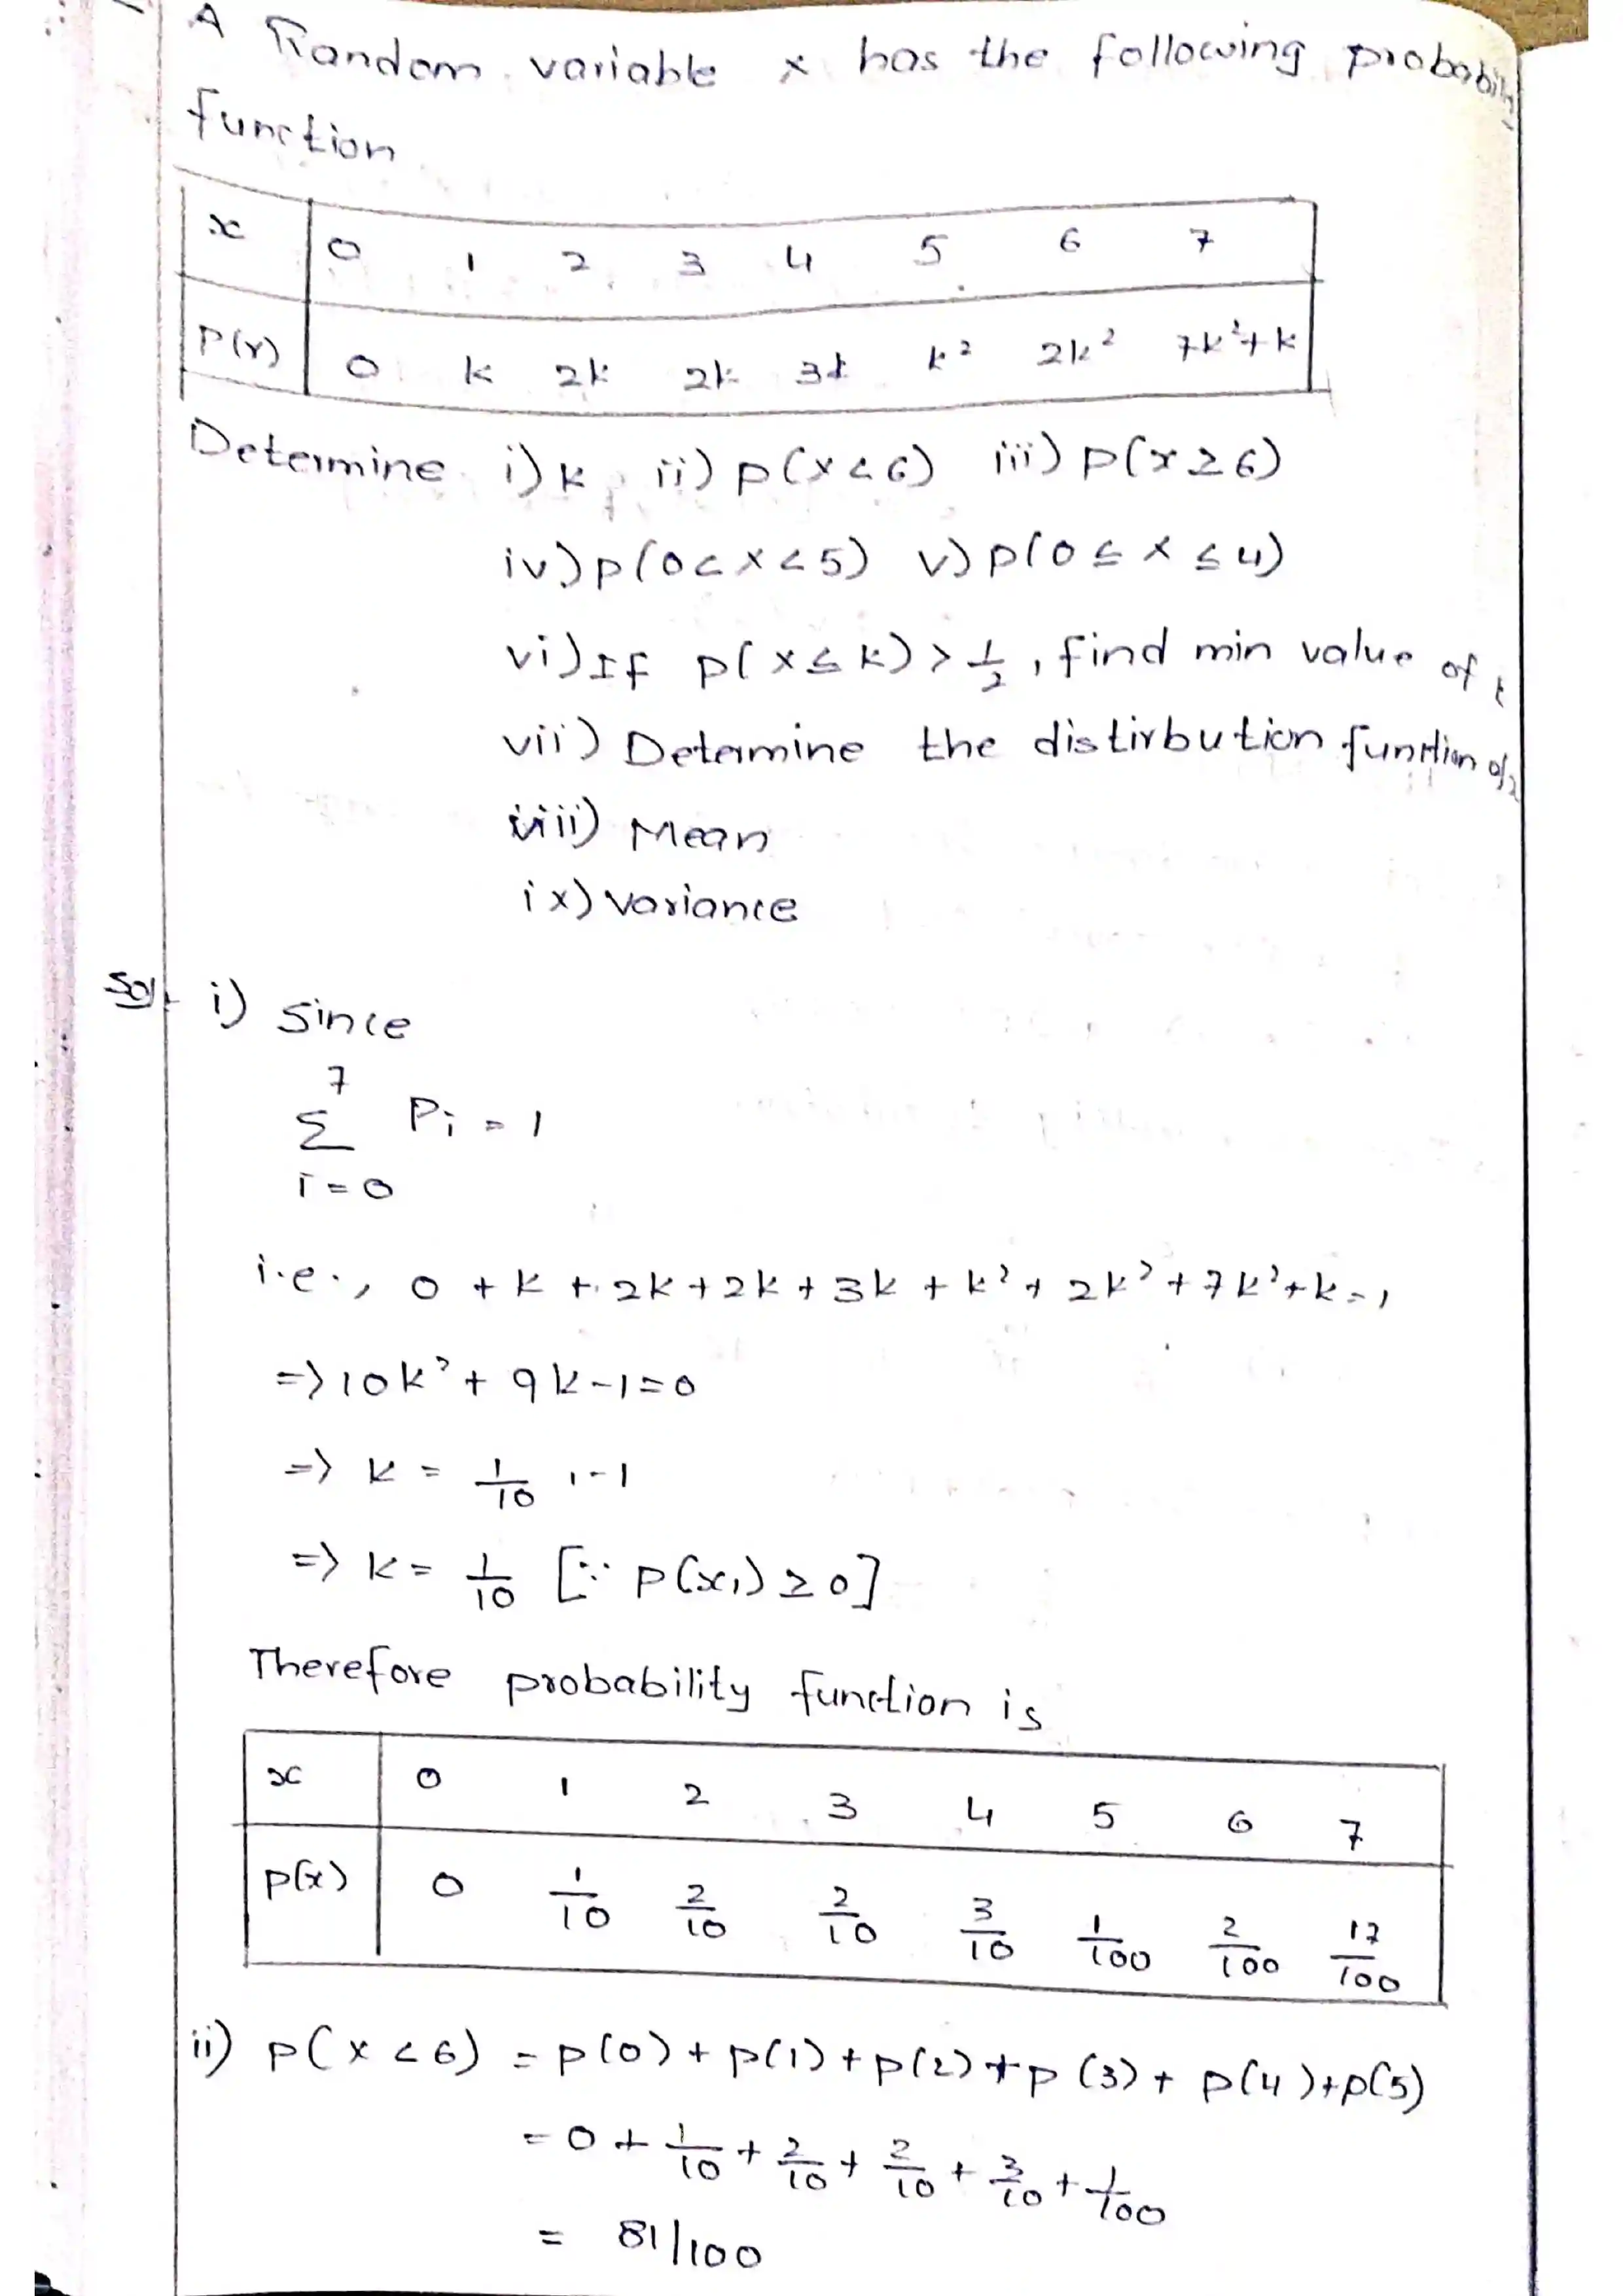 A Random variable x has the following probability
function
x 0 1 2 3 4 5 6 7
P(x) 0 k 2k 2k 3k k² 2k² 7k²+k
Determine i) k ii) P(x<6) iii) P(x≥6)
iv) P(0<x<5) v) P(0≤x≤4)
vi) If P(x≤k) > 1/2, find min value of k
vii) Determine the distirbution function of x
viii) Mean
ix) variance
Sol. i) Since
7
Σ Pi = 1
i=0
i.e., 0 + k + 2k + 2k + 3k + k² + 2k² + 7k² + k = 1
=> 10k² + 9k - 1 = 0
=> k = 1/10, -1
=> k = 1/10 [∵ P(xi) ≥ 0]
Therefore probability function is
x 0 1 2 3 4 5 6 7
p(x) 0 1/10 2/10 2/10 3/10 1/100 2/100 17/100
ii) P(x<6) = P(0) + P(1) + P(2) + P(3) + P(4) + P(5)
= 0 + 1/10 + 2/10 + 2/10 + 3/10 + 1/100
= 81/100